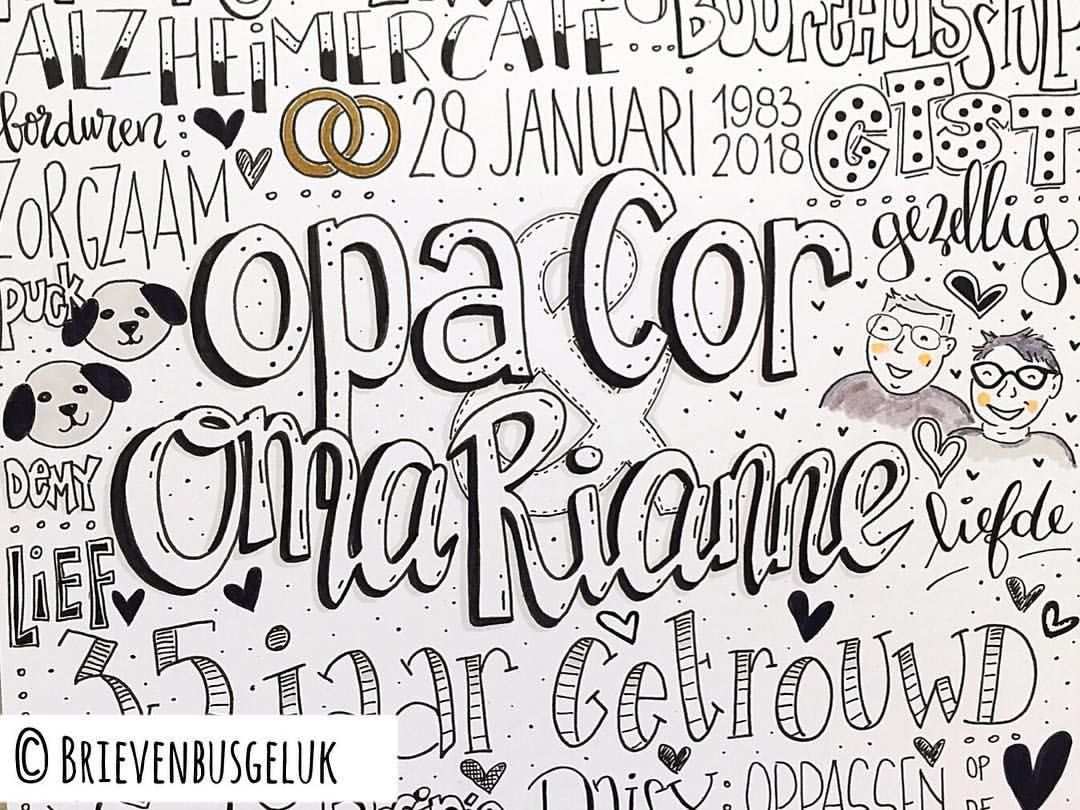 ALZHEIMERCAFE
borduren
28 JANUARI 1983
2018
GIST
ZORGZAAM
gezellig
opa Cor
&
PUCK
Oma Rianne
DEMY
liefde
LiEF
35 jaar GetrouwD
© BRIEVENBUSGELUK
OPPASSEN OP
DE